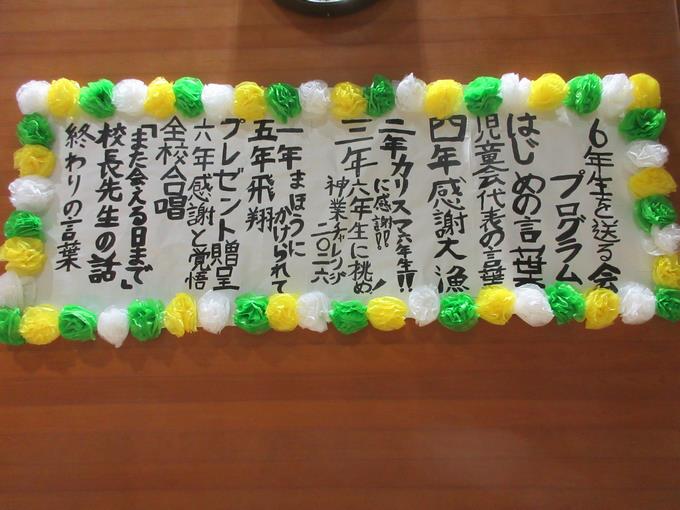 6年生を送る会
プログラム
はじめの言葉
児童会代表の言葉
四年感謝大漁
二年カリスマ六年生!!
に感謝!!
三年六年生に挑め!
神業チャレンジ二〇二六
一年まほうに
かけられて
五年飛翔
プレゼント贈呈
六年感謝と覚悟
全校合唱
「また会える日まで」
校長先生の話
終わりの言葉